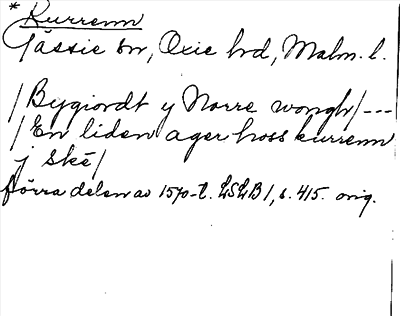 * Kurrenn
Gässie sn, Oxie hd, Malm. l.
/Bygiordt y Norre wongh/---
/En liden ager hoss kurrenn
j skè/
förra delen av 1570-t. LSLB 1, s. 415. orig.